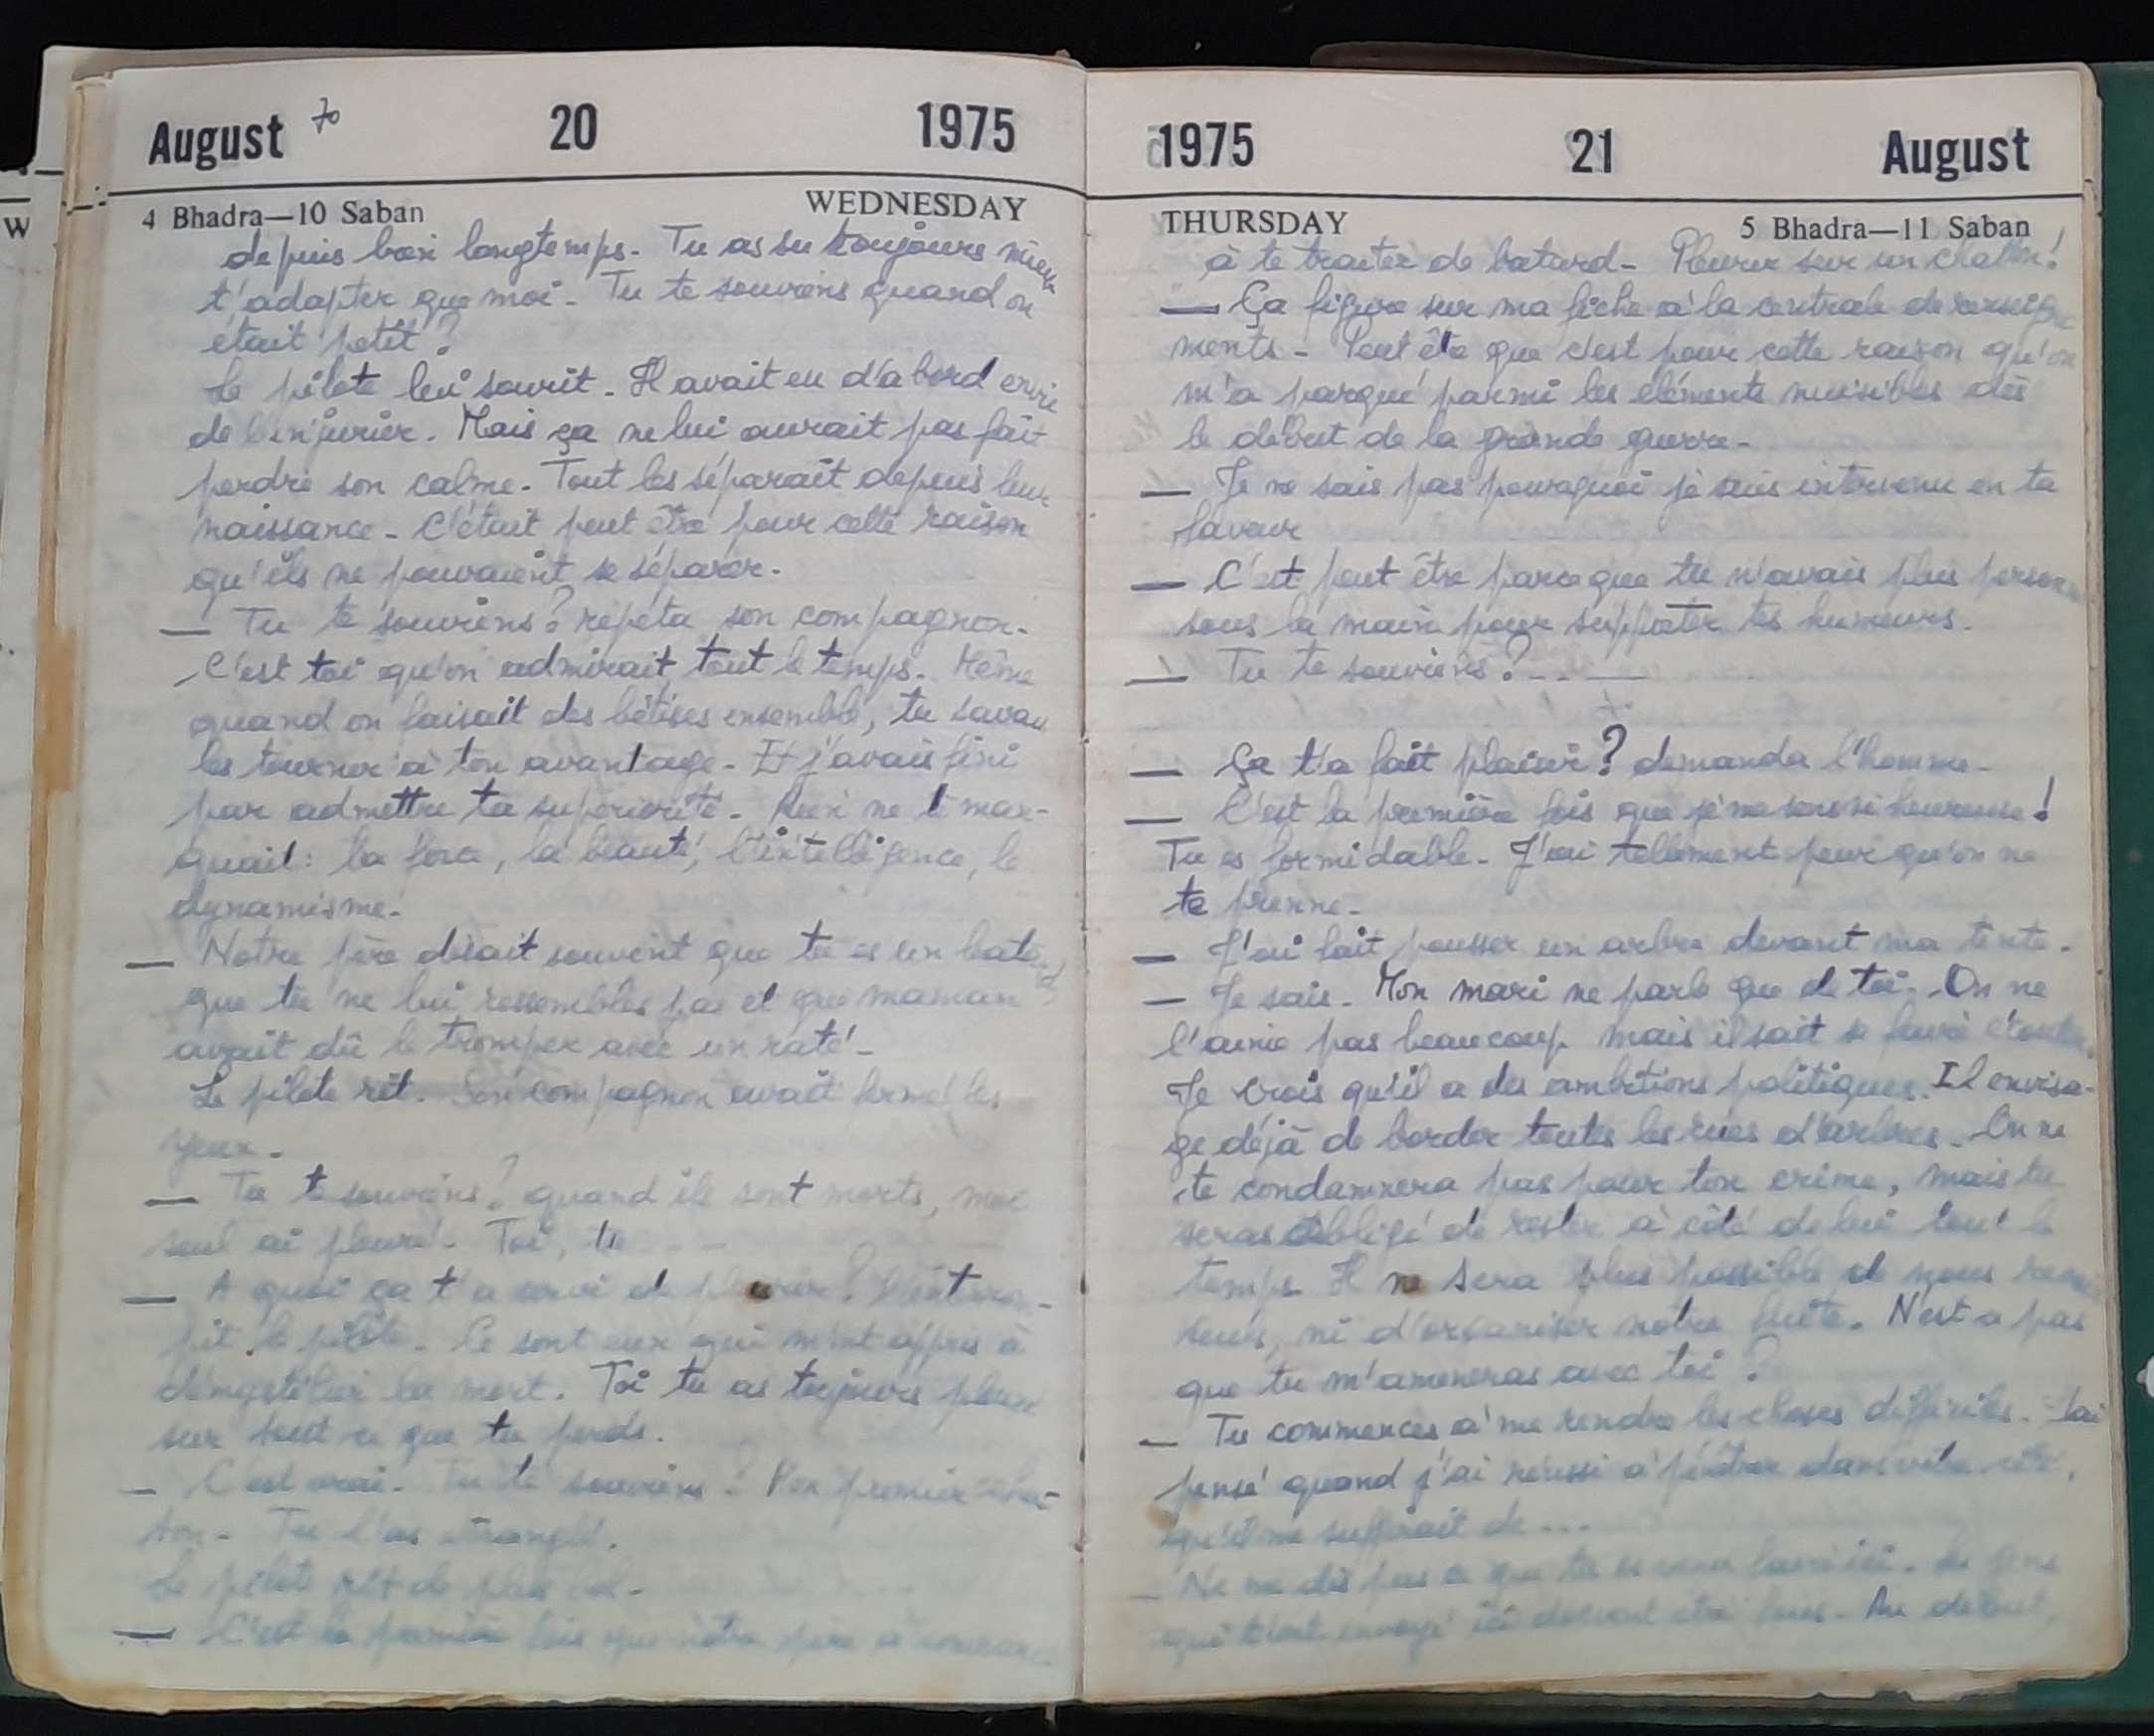 August 70 20 1975
4 Bhadra—10 Saban WEDNESDAY
depuis bien longtemps. Tu as su toujours mieux
t'adapter que moi. Tu te souviens quand on
était petit?
Le pilote lui sourit. Il avait eu d'abord envie
de l'injurier. Mais ça ne lui aurait pas fait
perdre son calme. Tout les séparait depuis leur
naissance. C'était peut être pour cette raison
qu'ils ne pouvaient se séparer.
— Tu te souviens? répéta son compagnon.
C'est toi qu'on admirait tout le temps. Même
quand on faisait des bêtises ensemble, tu savais
les tourner à ton avantage. Et j'avais fini
par admettre ta supériorité. Rien ne te man-
quait: la force, la beauté, l'intelligence, le
dynamisme.
— Notre père disait souvent que tu es un batard
que tu ne lui ressembles pas et que maman
avait dû le tromper avec un raté.
Le pilote rit. Son compagnon avait fermé les
yeux.
— Tu te souviens? quand ils sont morts, moi
seul ai pleuré. Toi, tu ...
— A quoi ça t'a servi de pleurer? l'interrom-
pit le pilote. Ce sont eux qui m'ont appris à
démystifier la mort. Toi tu as toujours pleuré
sur tout ce que tu perds.
— C'est vrai. Tu te souviens? Mon premier cha-
ton. Tu l'as étranglé.
Le pilote rit de plus bel.
— C'est la première fois que notre père a commencé
1975 21 August
THURSDAY 5 Bhadra—11 Saban
à te traiter de batard. Pleurer sur un chaton!
— Ça figure sur ma fiche à la centrale de renseigne
ments. Peut être que c'est pour cette raison qu'on
m'a parqué parmi les eléments nuisibles dès
le début de la grande guerre.
— Je ne sais pas pourquoi je suis intervenu en ta
faveur
— C'est peut être parce que tu n'avais plus personne
sous la main pour supporter tes humeurs.
— Tu te souviens? ...
— Ça t'a fait plaisir? demanda l'homme.
— C'est la première fois que je me sens si heureuse!
Tu es formidable. J'ai tellement peur qu'on ne
te prenne.
— J'ai fait pousser un arbre devant ma tente.
— Je sais. Mon mari ne parle que de toi. On ne
l'aime pas beaucoup mais il sait se faire écouter.
Je crois qu'il a des ambitions politiques. Il envisa-
ge déjà de border toutes les rues d'arbres. On ne
te condamnera pas pour ton crime, mais tu
seras obligé de rester à côté de lui tout le
temps. Il ne sera plus possible de nous
seuls, ni d'organiser notre fuite. N'est-ce pas
que tu m'ameneras avec toi?
— Tu commences à me rendre les choses difficiles. J'ai
pensé quand j'ai réussi à pénétrer dans votre cité,
qu'il me suffirait de ...
— Ne me dis pas ce que tu es venu faire ici. Les gens
qui t'ont envoyé ici doivent être fous. Au début,